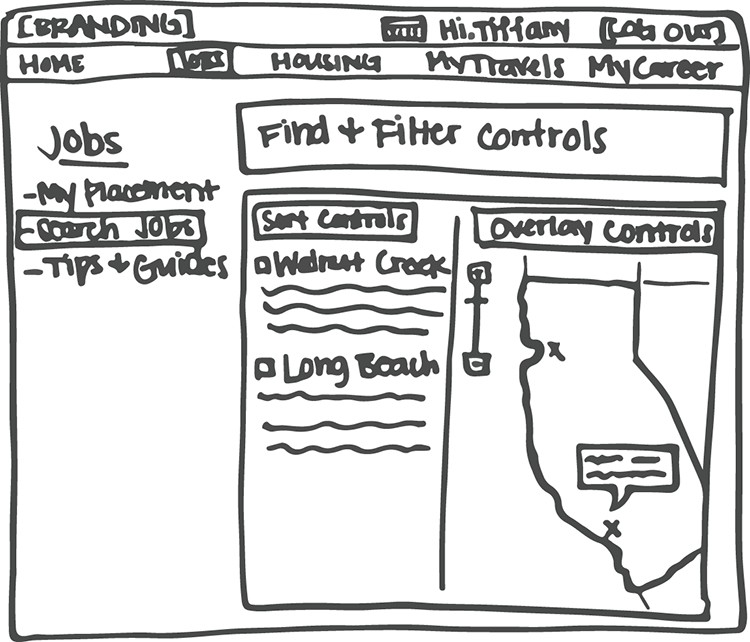 [BRANDING] Hi, Tiffany [Log Out]
HOME Jobs HOUSING MyTravels MyCareer
Jobs
- My Placement
- Search Jobs
- Tips + Guides
Find + Filter Controls
Sort Controls
Walnut Creek
Long Beach
Overlay Controls